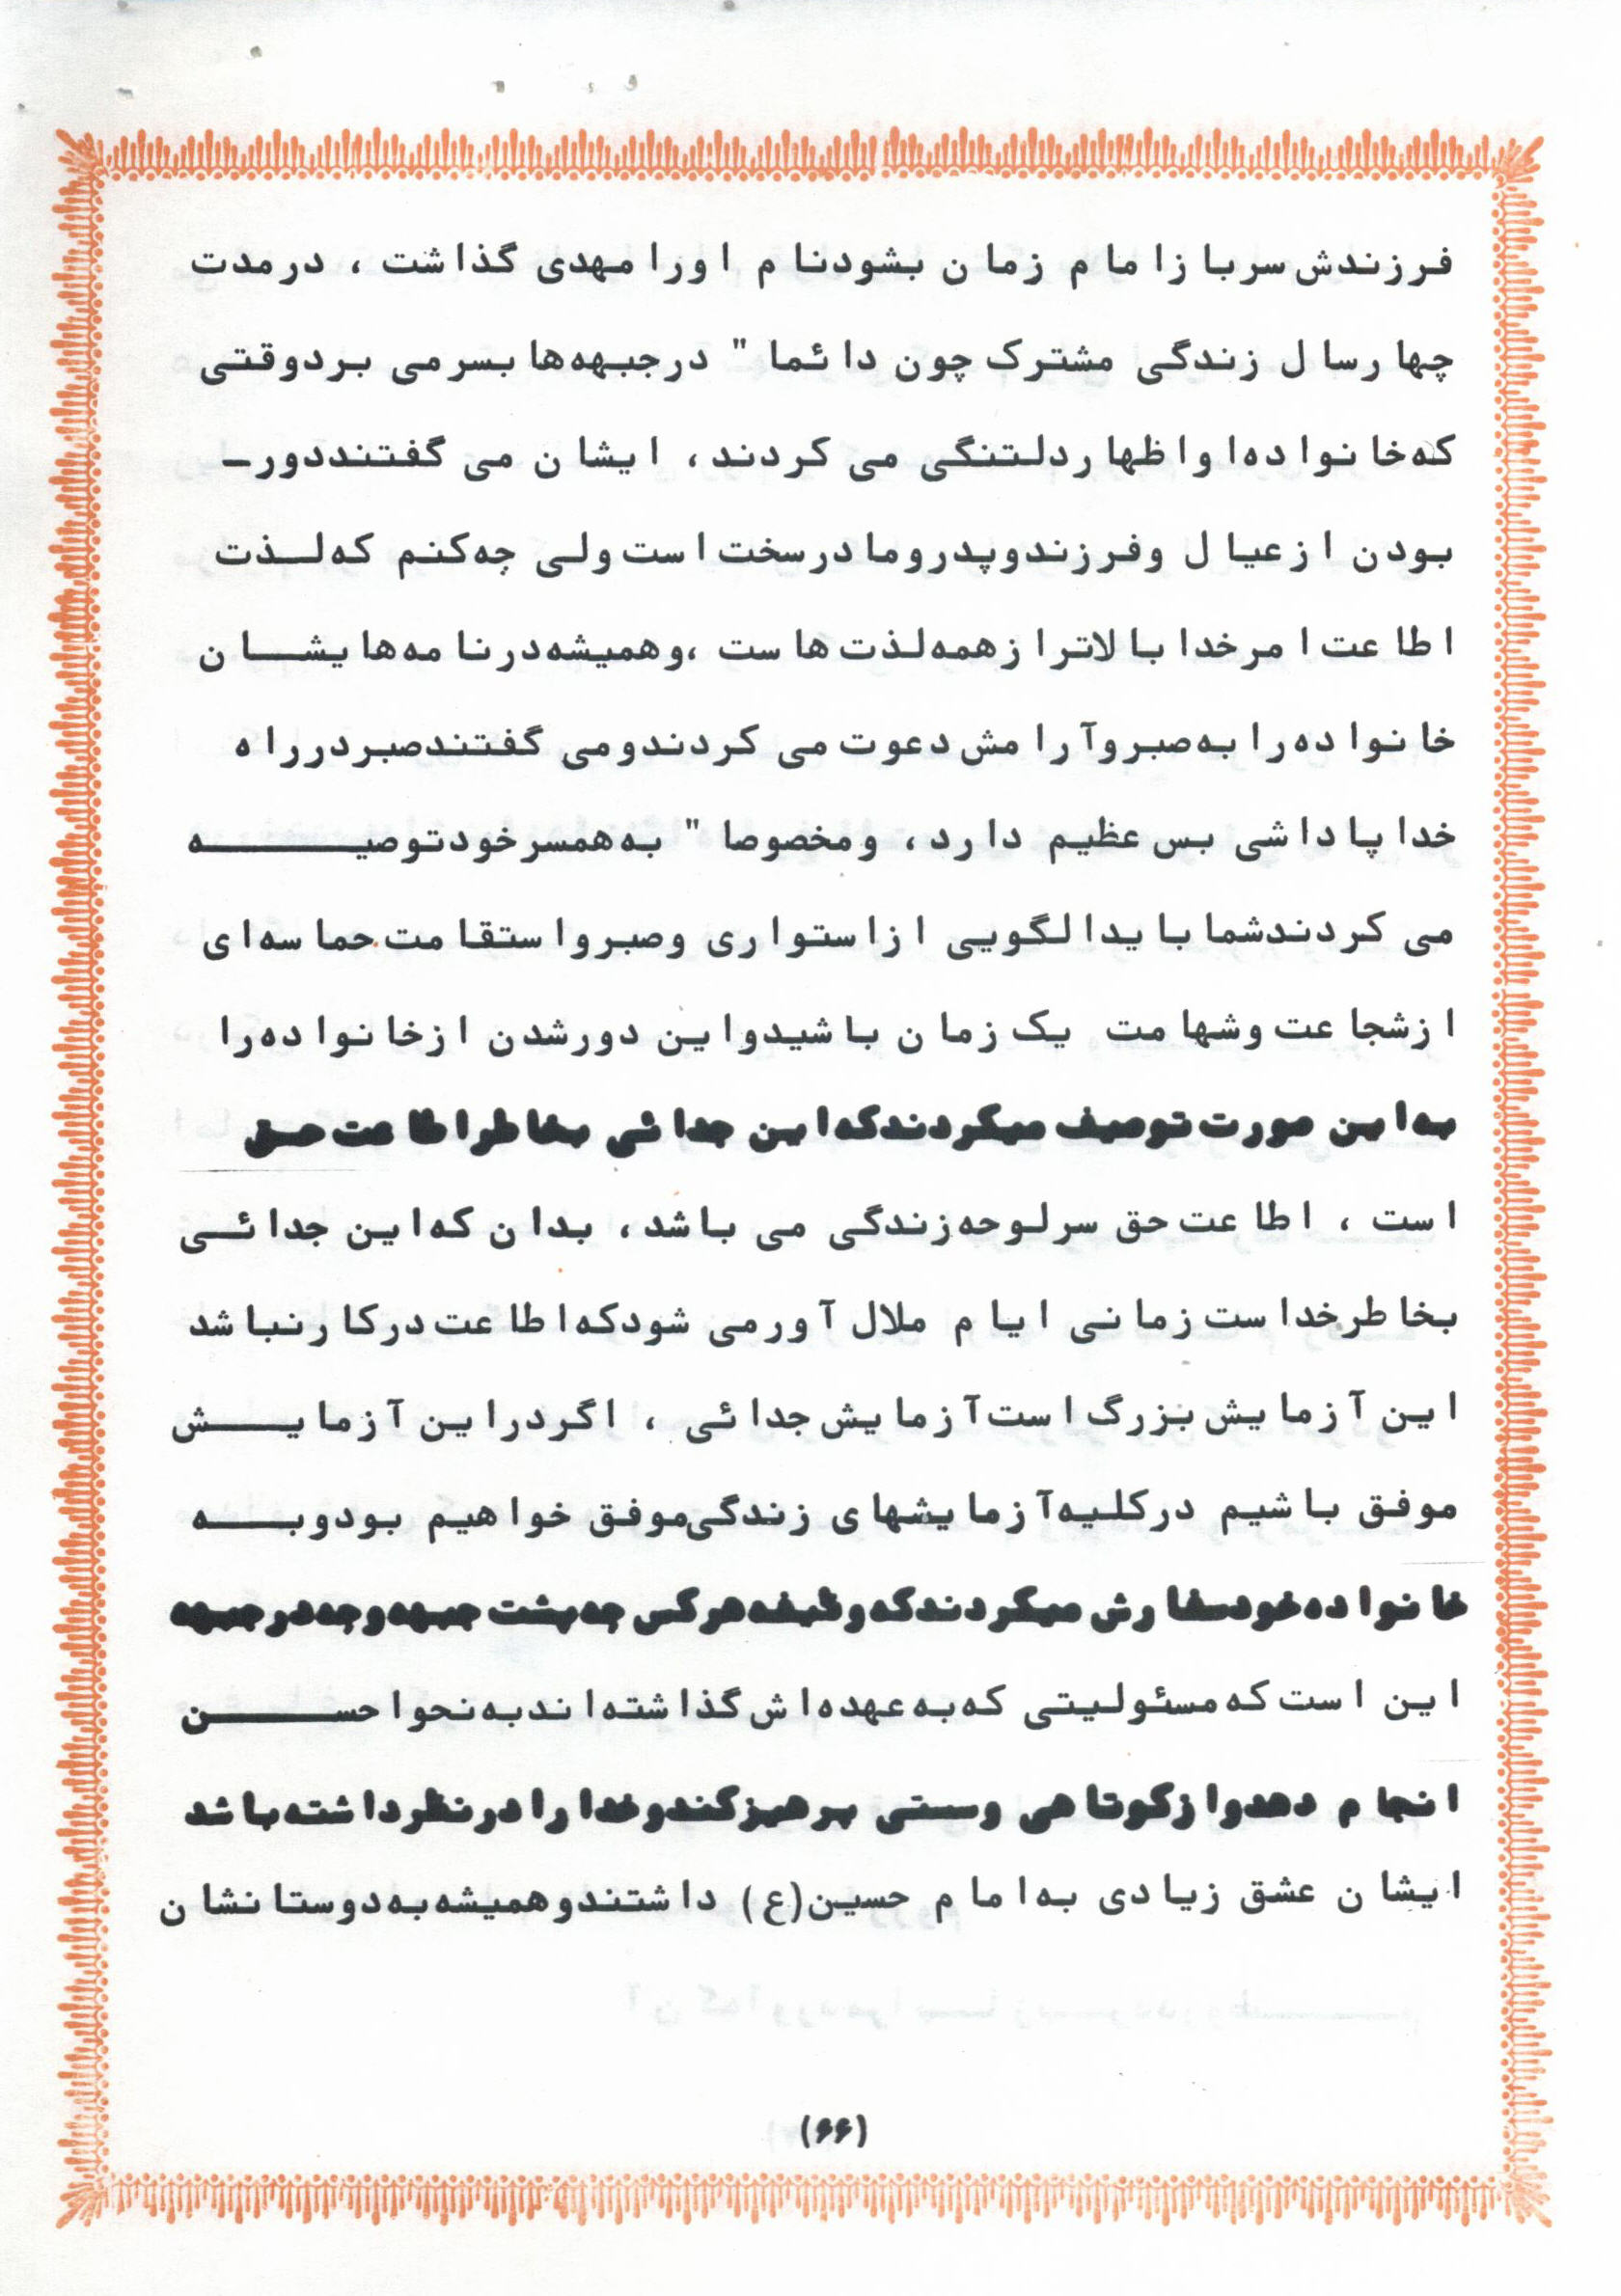 فرزندش سرباز امام زمان بشود نام او را مهدی گذاشت ، در مدت
چهار سال زندگی مشترک چون دائما " در جبهه‌ها بسر می برد وقتی
که خانواده او اظهار دلتنگی می کردند ، ایشان می گفتند دور ـ
بودن از عیال و فرزند و پدر و مادر سخت است ولی چه کنم که لــذت
اطاعت امر خدا بالاتر از همه لذت هاست ،و همیشه در نامه‌هایشــان
خانواده را به صبر و آرامش دعوت می کردند و می گفتند صبر در راه
خدا پاداشی بس عظیم دارد ، و مخصوصا " به همسر خود توصیــــــه
می کردند شما باید الگویی از استواری و صبر و استقامت حماسه‌ای
از شجاعت و شهامت یک زمان باشید و این دور شدن از خانواده را
به این صورت توصیف میکردند که این جدائی بخاطر اطاعت حــق
است ، اطاعت حق سرلوحه زندگی می باشد ، بدان که این جدائــی
بخاطر خداست زمانی ایام ملال آور می شود که اطاعت در کار نباشد
این آزمایش بزرگ است آزمایش جدائی ، اگر در این آزمایــــش
موفق باشیم در کلیه آزمایشهای زندگی موفق خواهیم بود و بــــه
خانواده خود سفارش میکردند که وظیفه هر کس چه پشت جبهه و چه در جبهه
این است که مسئولیتی که به عهده‌اش گذاشته‌اند به نحو احســــــن
انجام دهد و از کوتاهی و سستی پرهیز کند و خدا را در نظر داشته باشد
ایشان عشق زیادی به امام حسین(ع) داشتند و همیشه به دوستانشان
(۶۶)